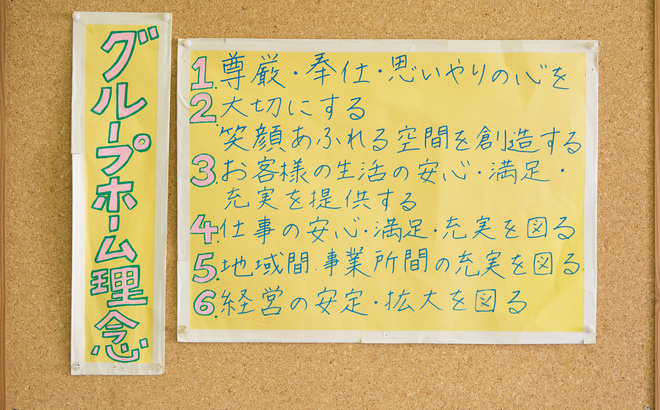 グループホーム理念
1.尊厳・奉仕・思いやりの心を
2.大切にする
笑顔あふれる空間を創造する
3.お客様の生活の安心・満足・
充実を提供する
4.仕事の安心・満足・充実を図る
5.地域間.事業所間の充実を図る
6.経営の安定・拡大を図る